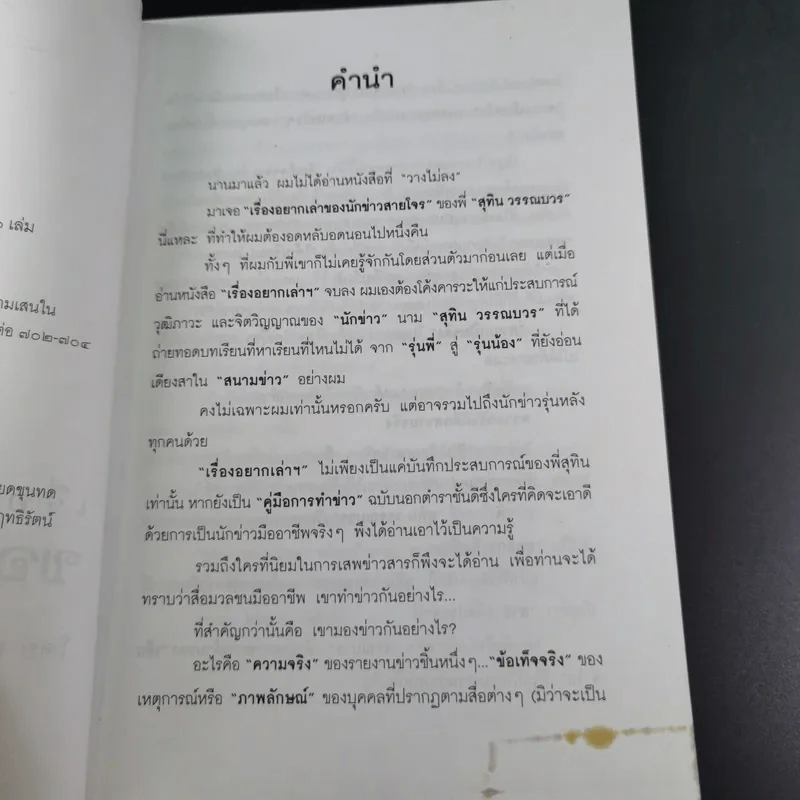 ๐ เล่ม
ามเสนใน
ต่อ ๗๐๒-๗๐๔
ยดขุนทด
ฤทธิรัตน์
คำนำ
นานมาแล้ว ผมไม่ได้อ่านหนังสือที่ "วางไม่ลง"
มาเจอ "เรื่องอยากเล่าของนักข่าวสายโจร" ของพี่ "สุทิน วรรณบวร"
นี่แหละ ที่ทำให้ผมต้องอดหลับอดนอนไปหนึ่งคืน
ทั้งๆ ที่ผมกับพี่เขาก็ไม่เคยรู้จักกันโดยส่วนตัวมาก่อนเลย แต่เมื่อ
อ่านหนังสือ "เรื่องอยากเล่าฯ" จบลง ผมเองต้องโค้งคารวะให้แก่ประสบการณ์
วุฒิภาวะ และจิตวิญญาณของ "นักข่าว" นาม "สุทิน วรรณบวร" ที่ได้
ถ่ายทอดบทเรียนที่หาเรียนที่ไหนไม่ได้ จาก "รุ่นพี่" สู่ "รุ่นน้อง" ที่ยังอ่อน
เดียงสาใน "สนามข่าว" อย่างผม
คงไม่เฉพาะผมเท่านั้นหรอกครับ แต่อาจรวมไปถึงนักข่าวรุ่นหลัง
ทุกคนด้วย
"เรื่องอยากเล่าฯ" ไม่เพียงเป็นแค่บันทึกประสบการณ์ของพี่สุทิน
เท่านั้น หากยังเป็น "คู่มือการทำข่าว" ฉบับนอกตำราชั้นดีซึ่งใครที่คิดจะเอาดี
ด้วยการเป็นนักข่าวมืออาชีพจริงๆ พึงได้อ่านเอาไว้เป็นความรู้
รวมถึงใครที่นิยมในการเสพข่าวสารก็พึงจะได้อ่าน เพื่อท่านจะได้
ทราบว่าสื่อมวลชนมืออาชีพ เขาทำข่าวกันอย่างไร...
ที่สำคัญกว่านั้นคือ เขามองข่าวกันอย่างไร?
อะไรคือ "ความจริง" ของรายงานข่าวชิ้นหนึ่งๆ..."ข้อเท็จจริง" ของ
เหตุการณ์หรือ "ภาพลักษณ์" ของบุคคลที่ปรากฏตามสื่อต่างๆ (มิว่าจะเป็น